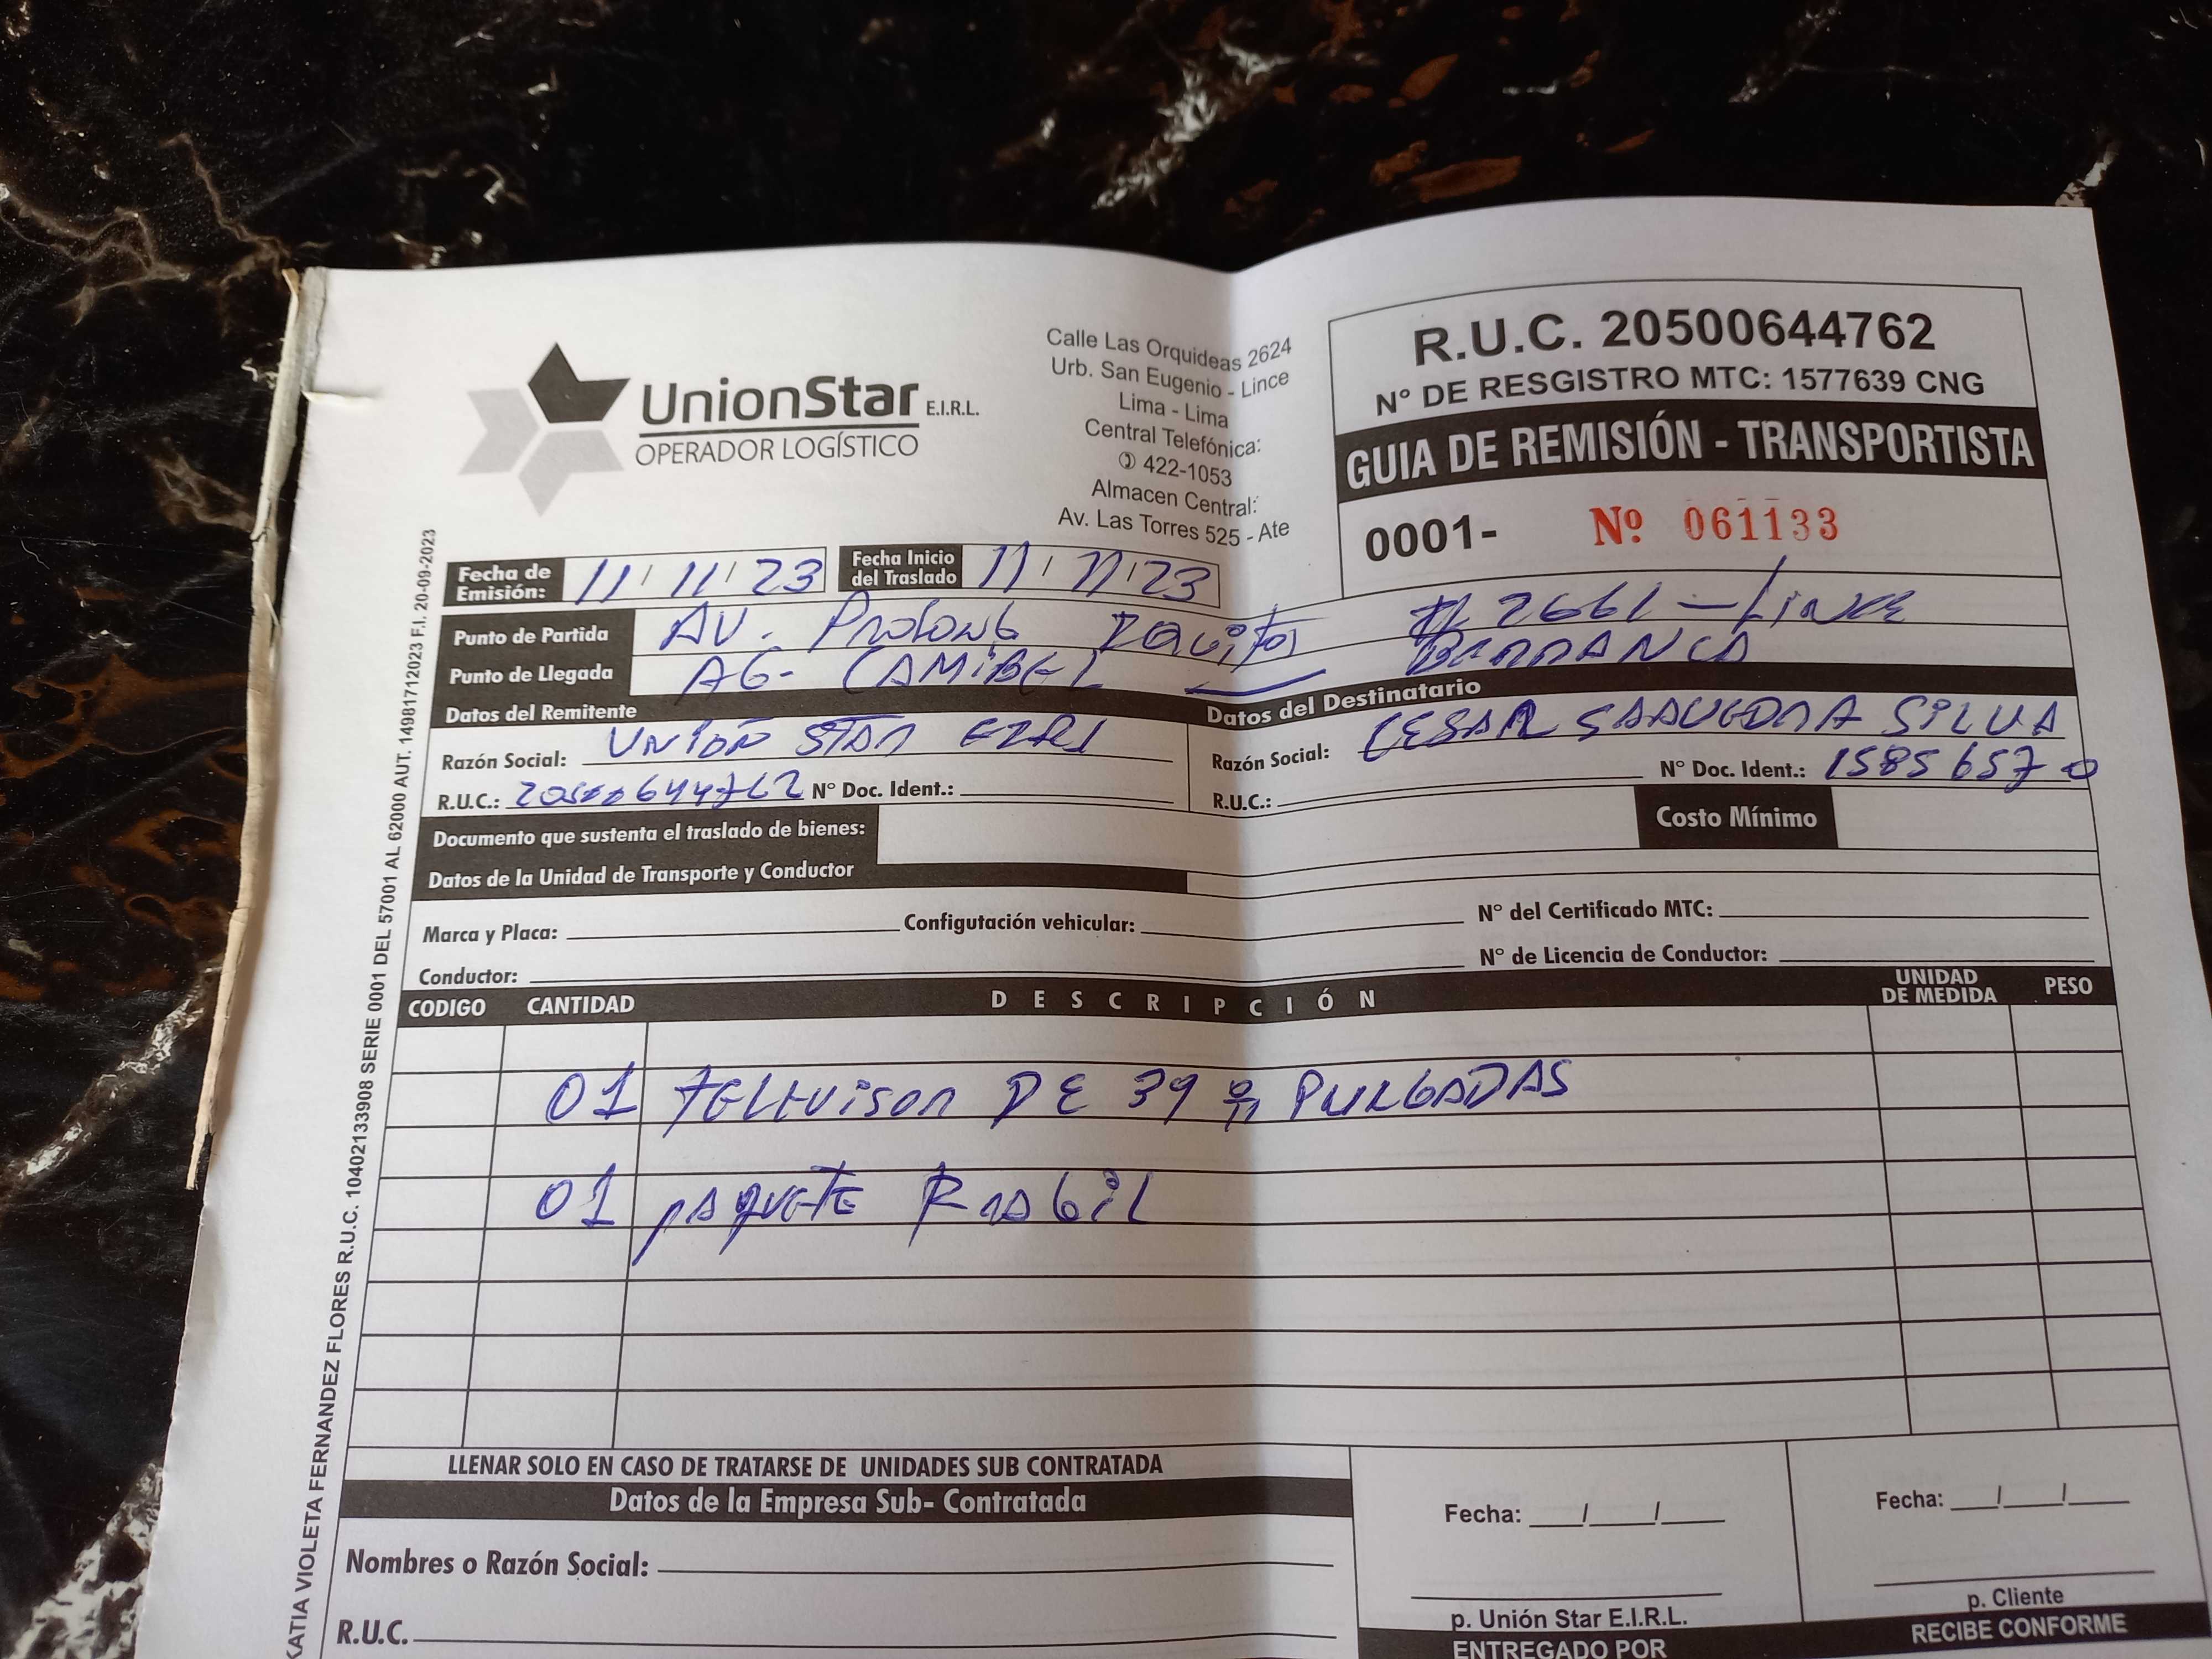 UnionStar E.I.R.L.
OPERADOR LOGÍSTICO
Calle Las Orquideas 2624
Urb. San Eugenio - Lince
Lima - Lima
Central Telefónica:
422-1053
Almacen Central:
Av. Las Torres 525 - Ate
R.U.C. 20500644762
N° DE RESGISTRO MTC: 1577639 CNG
GUIA DE REMISIÓN - TRANSPORTISTA
0001- Nº 061133
Fecha de Emisión: 11/11/23 Fecha Inicio del Traslado 11/11/23
Punto de Partida AV. Prolong # 2661 - Lince
Punto de Llegada AG. CAMIBEL BARRANCA
Datos del Remitente Datos del Destinatario
Razón Social: UNION STAR EIRL Razón Social: CESAR SAAVEDRA SILVA
R.U.C.: 20500644762 N° Doc. Ident.: R.U.C.: N° Doc. Ident.: 15856570
Documento que sustenta el traslado de bienes: Costo Mínimo
Datos de la Unidad de Transporte y Conductor
Marca y Placa: Configutación vehicular: N° del Certificado MTC:
Conductor: N° de Licencia de Conductor:
CODIGO CANTIDAD DESCRIPCIÓN UNIDAD DE MEDIDA PESO
01 TELEVISOR DE 39 PULGADAS
01 PAQUETE FRAGIL
LLENAR SOLO EN CASO DE TRATARSE DE UNIDADES SUB CONTRATADA
Datos de la Empresa Sub- Contratada
Nombres o Razón Social:
R.U.C.
Fecha: / /
p. Unión Star E.I.R.L.
ENTREGADO POR
Fecha: / /
p. Cliente
RECIBE CONFORME
KATIA VIOLETA FERNANDEZ FLORES R.U.C. 10402133908 SERIE 0001 DEL 57001 AL 62000 AUT. 14981712023 F.I. 20-09-2023